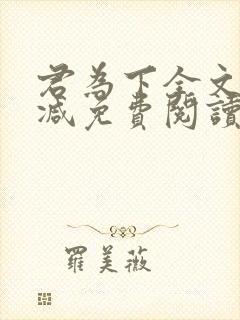 君為下全文
減免費閱讀
羅美薇